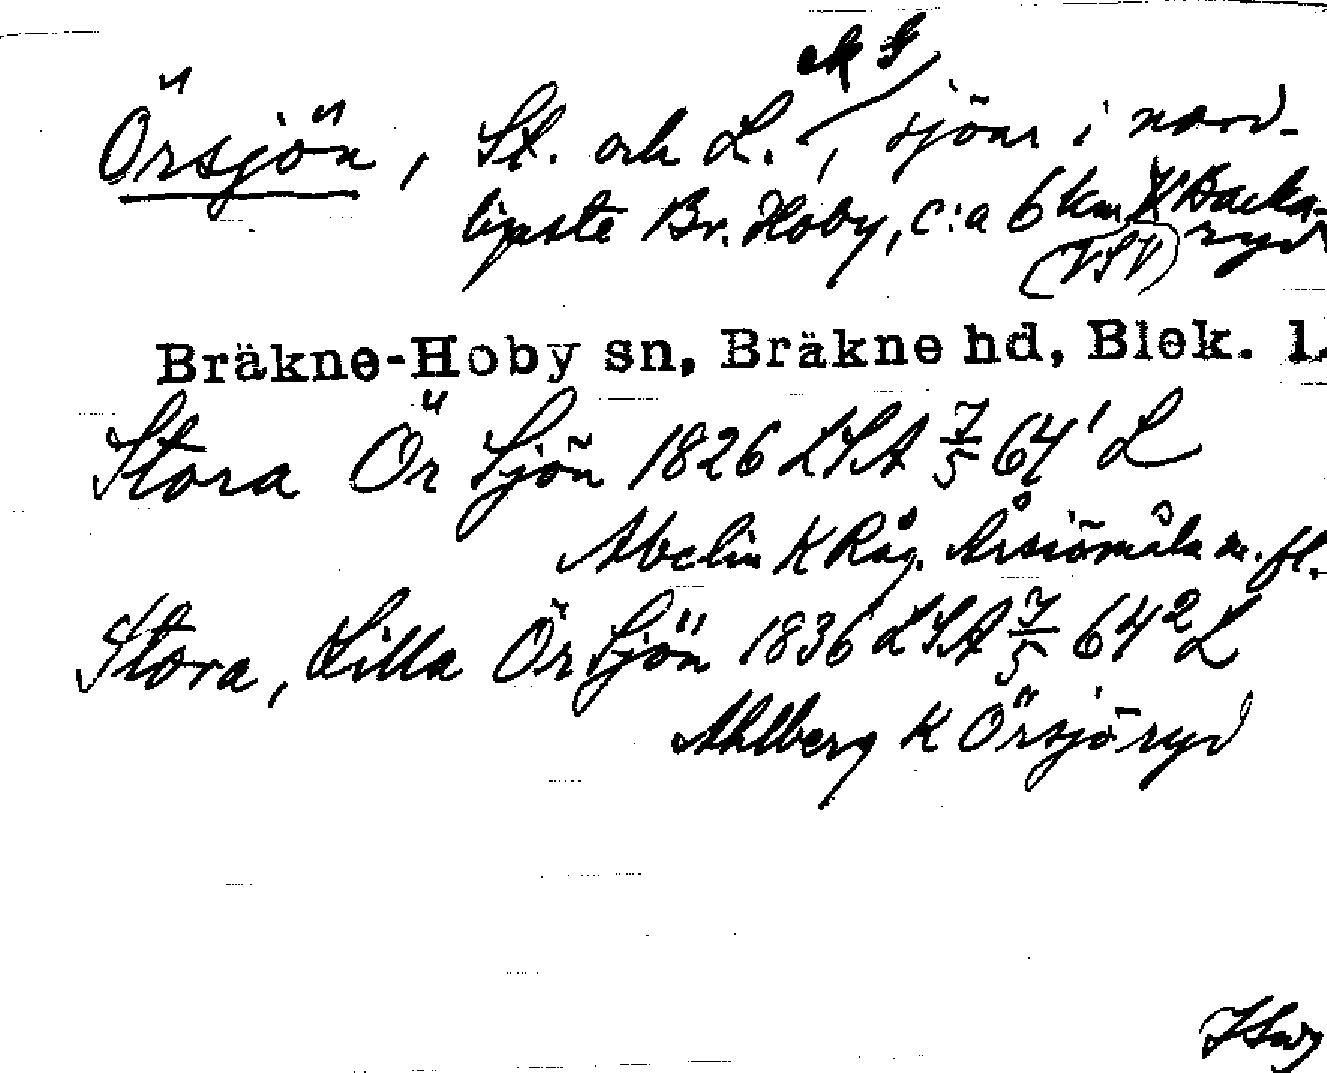 Örsjön, St. och L., sjöar i nord-
ligaste Br. Hoby, c:a 6 km V Backa-
(VSV) ryd
Bräkne-Hoby sn, Bräkne hd, Blek. l.
Stora Ör Sjön 1826 LSA 7/5 64¹ L
Abelin K Råg. Årsiömåla m. fl.
Stora, Lilla Ör Sjön 1836 LSA 7/5 64² L
Ahlberg K Örsjöryd